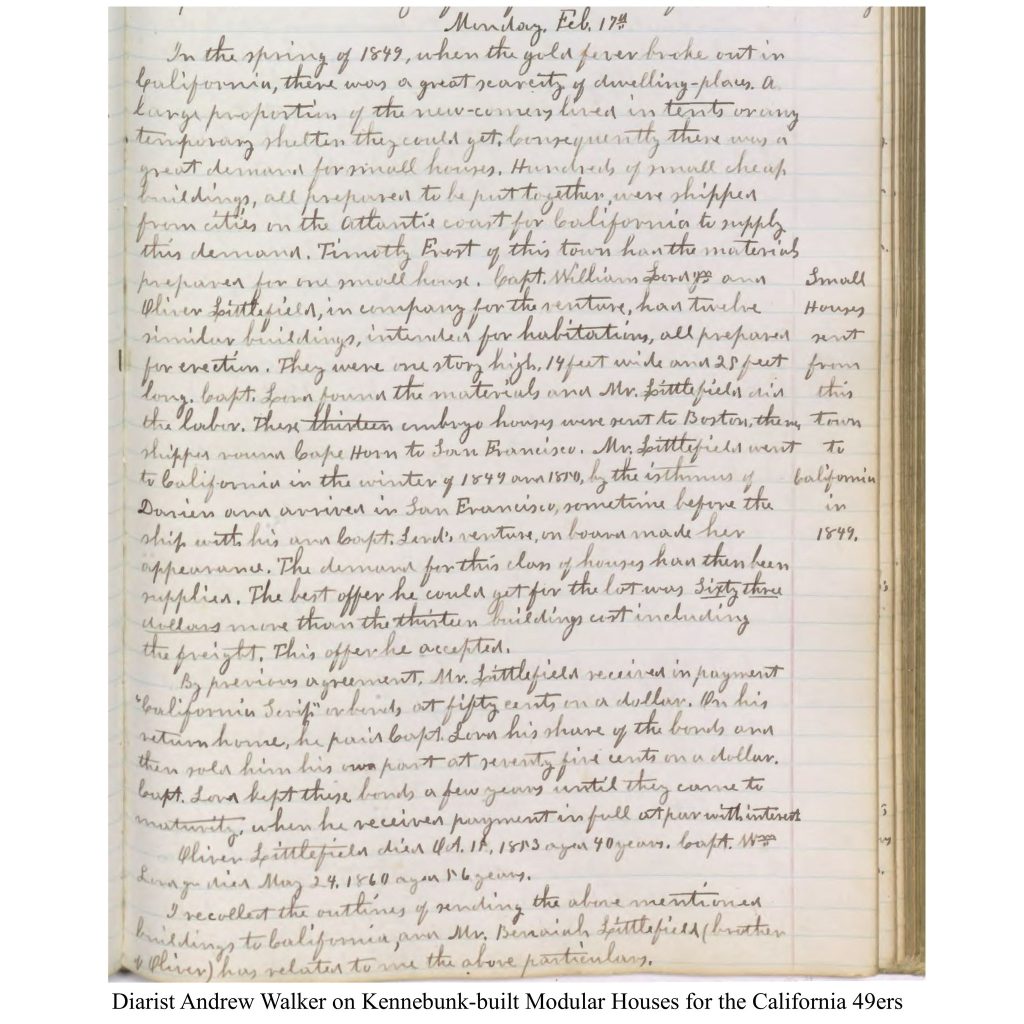 Monday. Feb. 17th
In the spring of 1849, when the gold fever broke out in
California, there was a great scarcity of dwelling-places. A
large proportion of the new-comers lived in tents or any
temporary shelter they could get. Consequently there was a
great demand for small houses. Hundreds of small cheap
buildings, all prepared to be put together, were shipped
from cities on the Atlantic coast for California to supply
this demand. Timothy Frost of this town had the materials
prepared for one small house. Capt. William Lord jr. and
Oliver Littlefield, in company for the venture, had twelve
similar buildings, intended for habitations, all prepared
for erection. They were one story high, 14 feet wide and 25 feet
long. Capt. Lord found the materials and Mr. Littlefield did
the labor. These thirteen embryo houses were sent to Boston, then
shipped round Cape Horn to San Francisco. Mr. Littlefield went
to California in the winter of 1849 and 1850, by the isthmus of
Darien and arrived in San Francisco, sometime before the
ship with his and Capt. Lord's venture, on board made her
appearance. The demand for this class of houses had then been
supplied. The best offer he could get for the lot was Sixty three
dollars more than the thirteen buildings cost including
the freight. This offer he accepted.
By previous agreement. Mr. Littlefield received in payment
"California Scrip" or bonds at fifty cents on a dollar. On his
return home, he paid Capt. Lord his share of the bonds and
then sold him his own part at seventy five cents on a dollar.
Capt. Lord kept these bonds a few years until they came to
maturity, when he received payment in full at par with interest
Oliver Littlefield died Oct. 15, 1853 aged 40 years. Capt. Wm
Lord jr died May 24. 1860 aged 56 years.
I recollect the outlines of sending the above mentioned
buildings to California, and Mr. Benaiah Littlefield (brother
of Oliver) has related to me the above particulars.
Small
Houses
sent
from
this
town
to
California
in
1849.
Diarist Andrew Walker on Kennebunk-built Modular Houses for the California 49ers